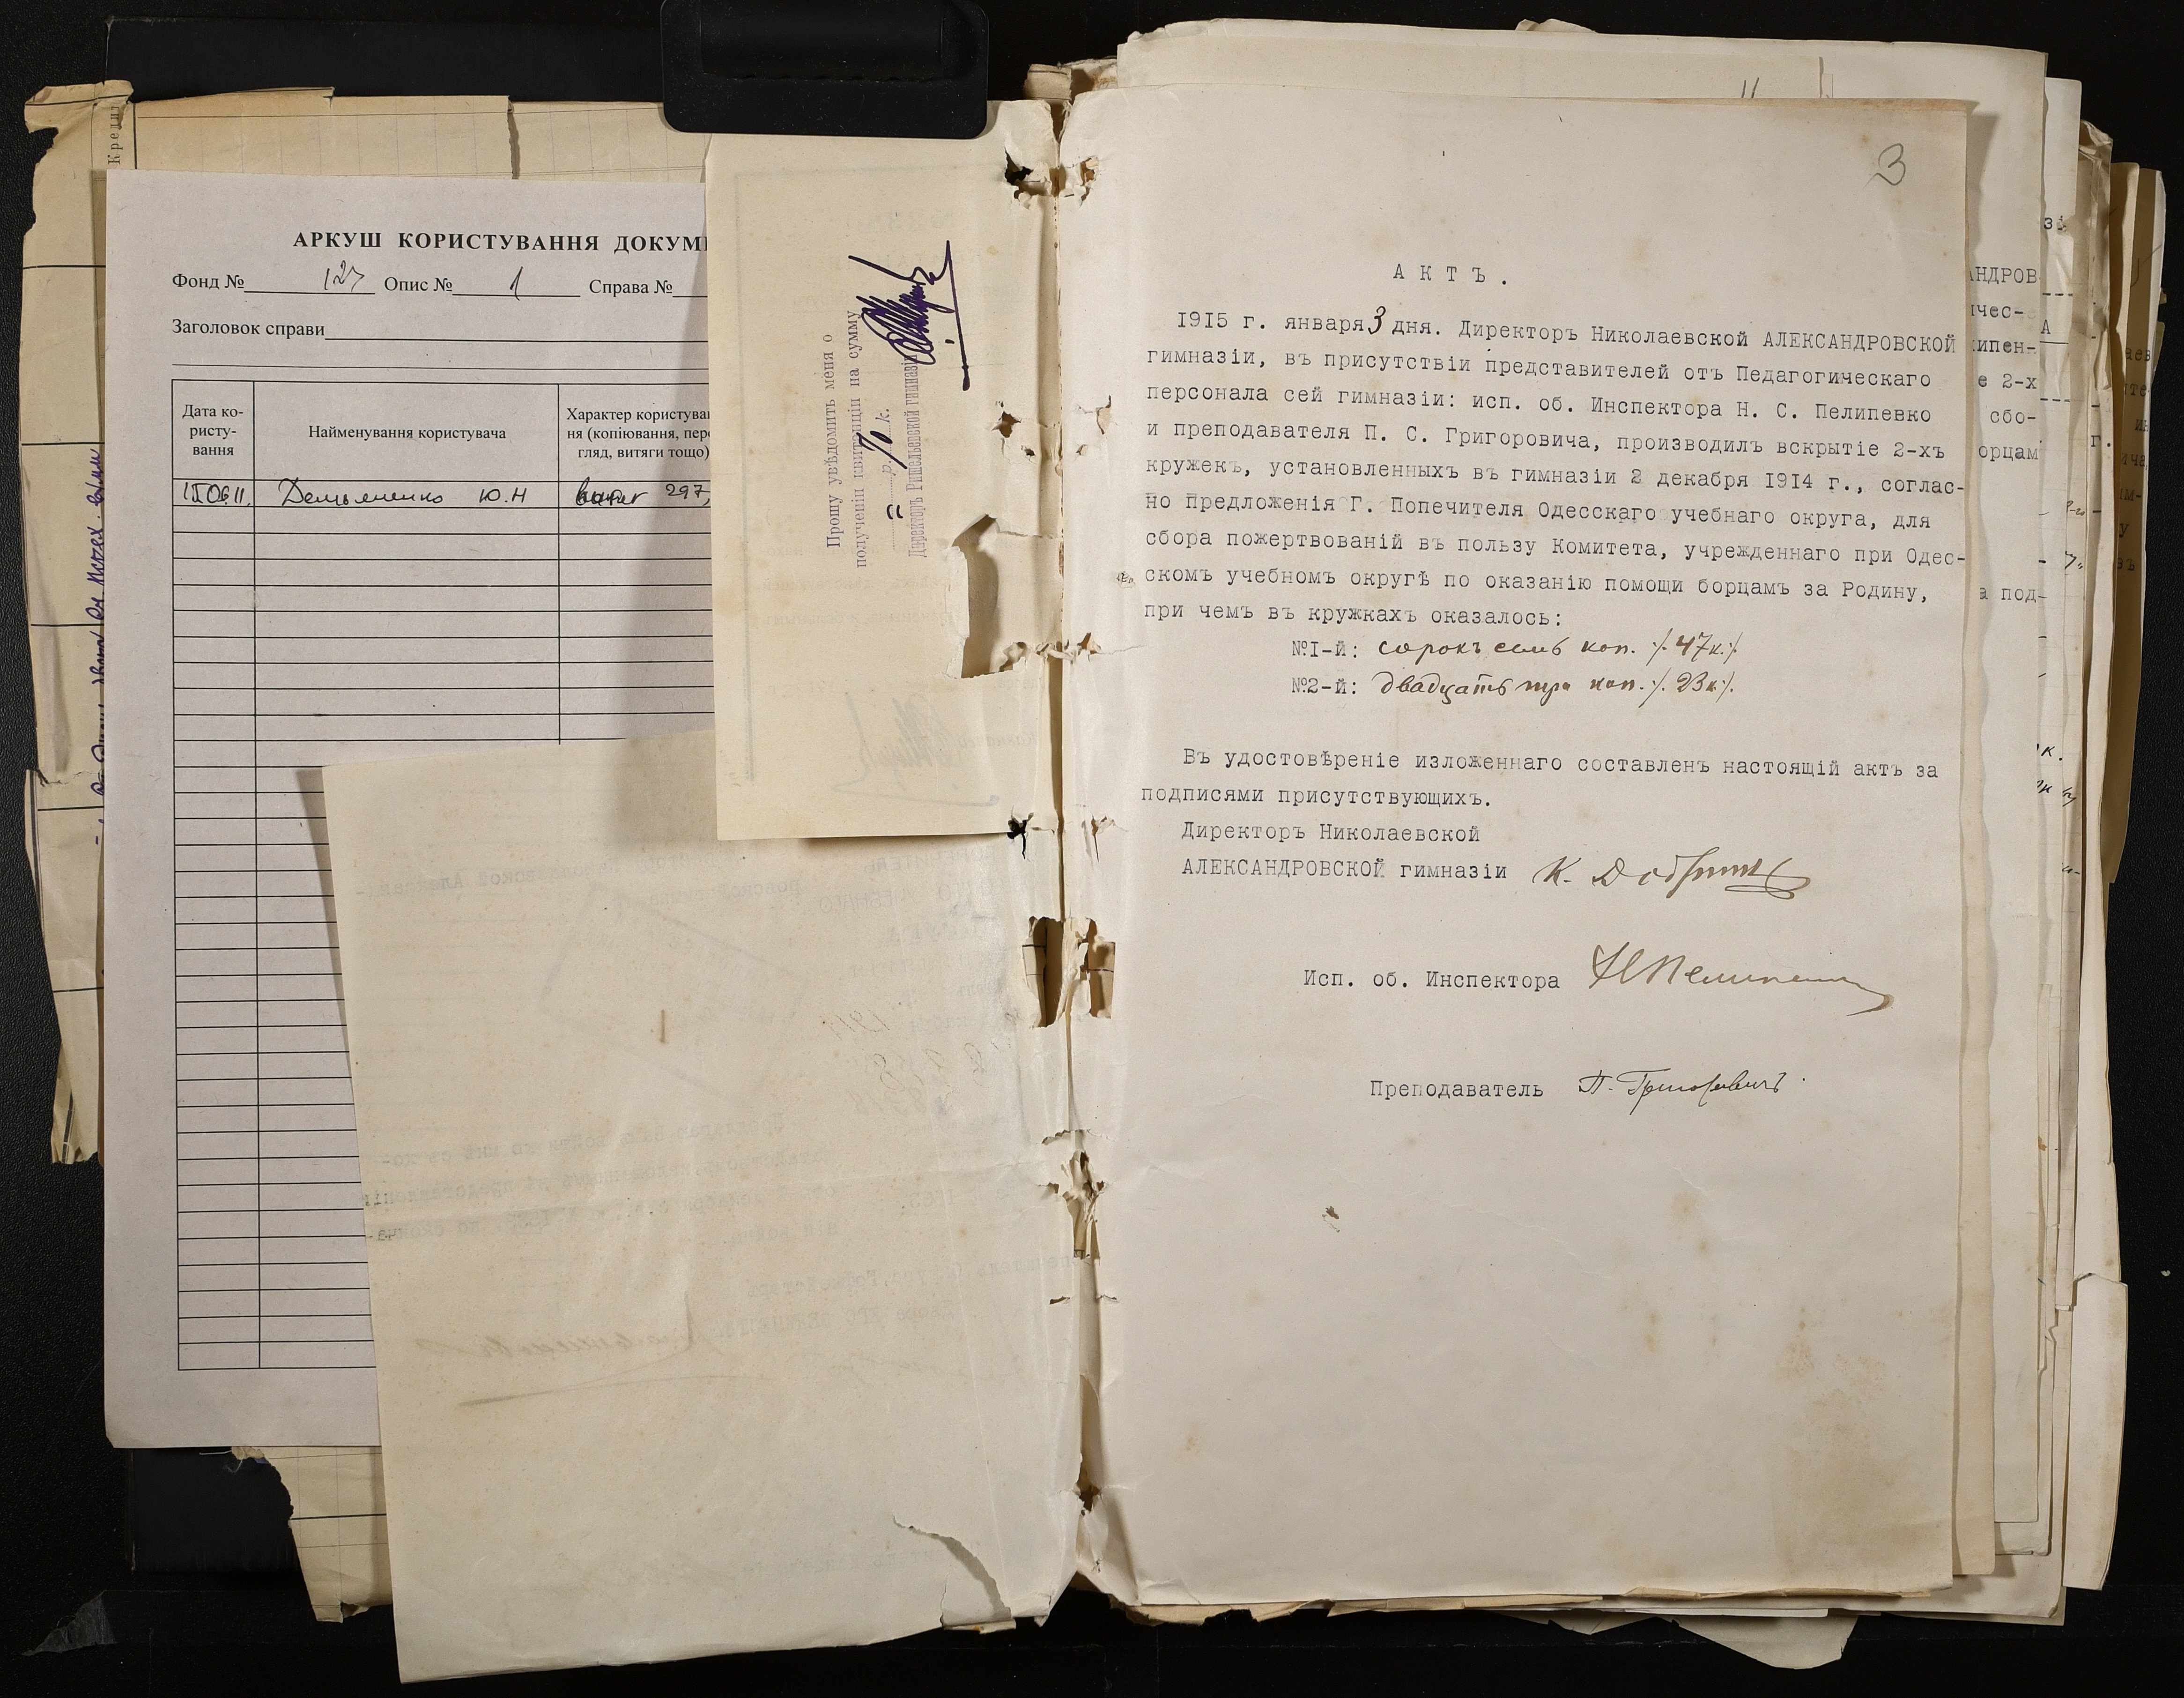 Кредит
АРКУШ КОРИСТУВАННЯ ДОКУМ
Фонд № 127 Опис № 1 Справа №
Заголовок справи
Дата ко-
ристу-
вання
Найменування користувача
Характер користува
ня (копіювання, пере
гляд, витяги тощо)
15.06.11. Демьяненко Ю.Н 297,
Прошу увѣдомить меня о
полученіи квитанціи на сумму
" р. 70 к.
Директоръ Ришельевской гимназіи
3
АКТЪ.
1915 г. января 3 дня. Директоръ Николаевской АЛЕКСАНДРОВСКОЙ
гимназіи, въ присутствіи представителей отъ Педагогическаго
персонала сей гимназіи: исп. об. Инспектора Н. С. Пелипевко
и преподавателя П. С. Григоровича, производилъ вскрытіе 2-хъ
кружекъ, установленныхъ въ гимназіи 2 декабря 1914 г., соглас-
но предложенія Г. Попечителя Одесскаго учебнаго округа, для
сбора пожертвованій въ пользу Комитета, учрежденнаго при Одес-
скомъ учебномъ округѣ по оказанію помощи борцамъ за Родину,
при чемъ въ кружкахъ оказалось:
№I-й: сорокъ семь коп. /. 47к./.
№2-й: двадцать три коп. /. 23к./.
Въ удостовѣреніе изложеннаго составленъ настоящій актъ за
подписями присутствующихъ.
Директоръ Николаевской
АЛЕКСАНДРОВСКОЙ гимназіи К.
Исп. об. Инспектора
Преподаватель П. Григоровичъ
АНДРОВ
ичес-
ипен-
е 2-х
сбо-
орцам
а под-